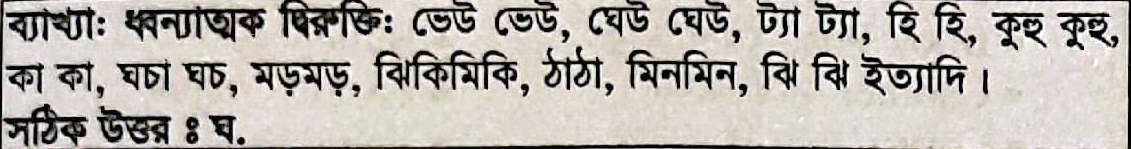 ব্যাখ্যাঃ ধ্বন্যাত্মক দ্বিরুক্তিঃ ভেউ ভেউ, ঘেউ ঘেউ, ট্যা ট্যা, হি হি, কুহু কুহু,
কা কা, ঘচা ঘচ, মড়মড়, ঝিকিমিকি, ঠাঠা, মিনমিন, ঝি ঝি ইত্যাদি।
সঠিক উত্তর ঃ ঘ.